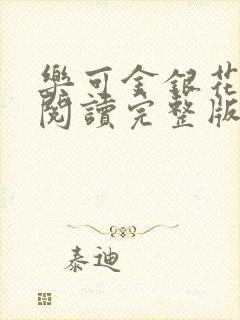 樂可金銀花
閱讀完整版
泰迪